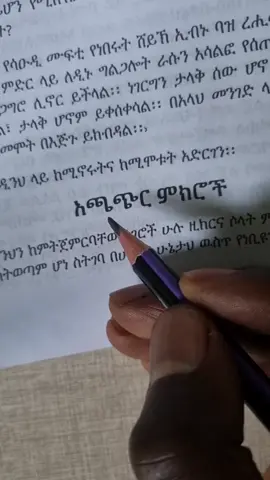 ሆን
ት?
የሳዑዲ ሙፍቲ የነበሩት ሸይኽ ኢብኑ ባዝ ረሒ
ምድር ላይ ለዲኑ ግልጋሎት ራሱን አሳልፎ የሰጠ
ጋሞ ሊኖር ይችላል። ነገርግን ታላቅ ሰው ሆኖ
ል፣ ታላቅ ሆኖም ይቀሰቀሳል። በአላህ መንገድ ላ
መሞት በእጅጉ ይከብዳል።
ዲንህ ላይ ከሚኖሩትና ከሚሞቱት አድርገን።
አጫጭር ምክሮች
ንህን ከምትጀምርባቸው ሁሉ ዚክርና ሶላት
ስትወጣም ሆነ ስትገባ ውስጥ የነቢዩ